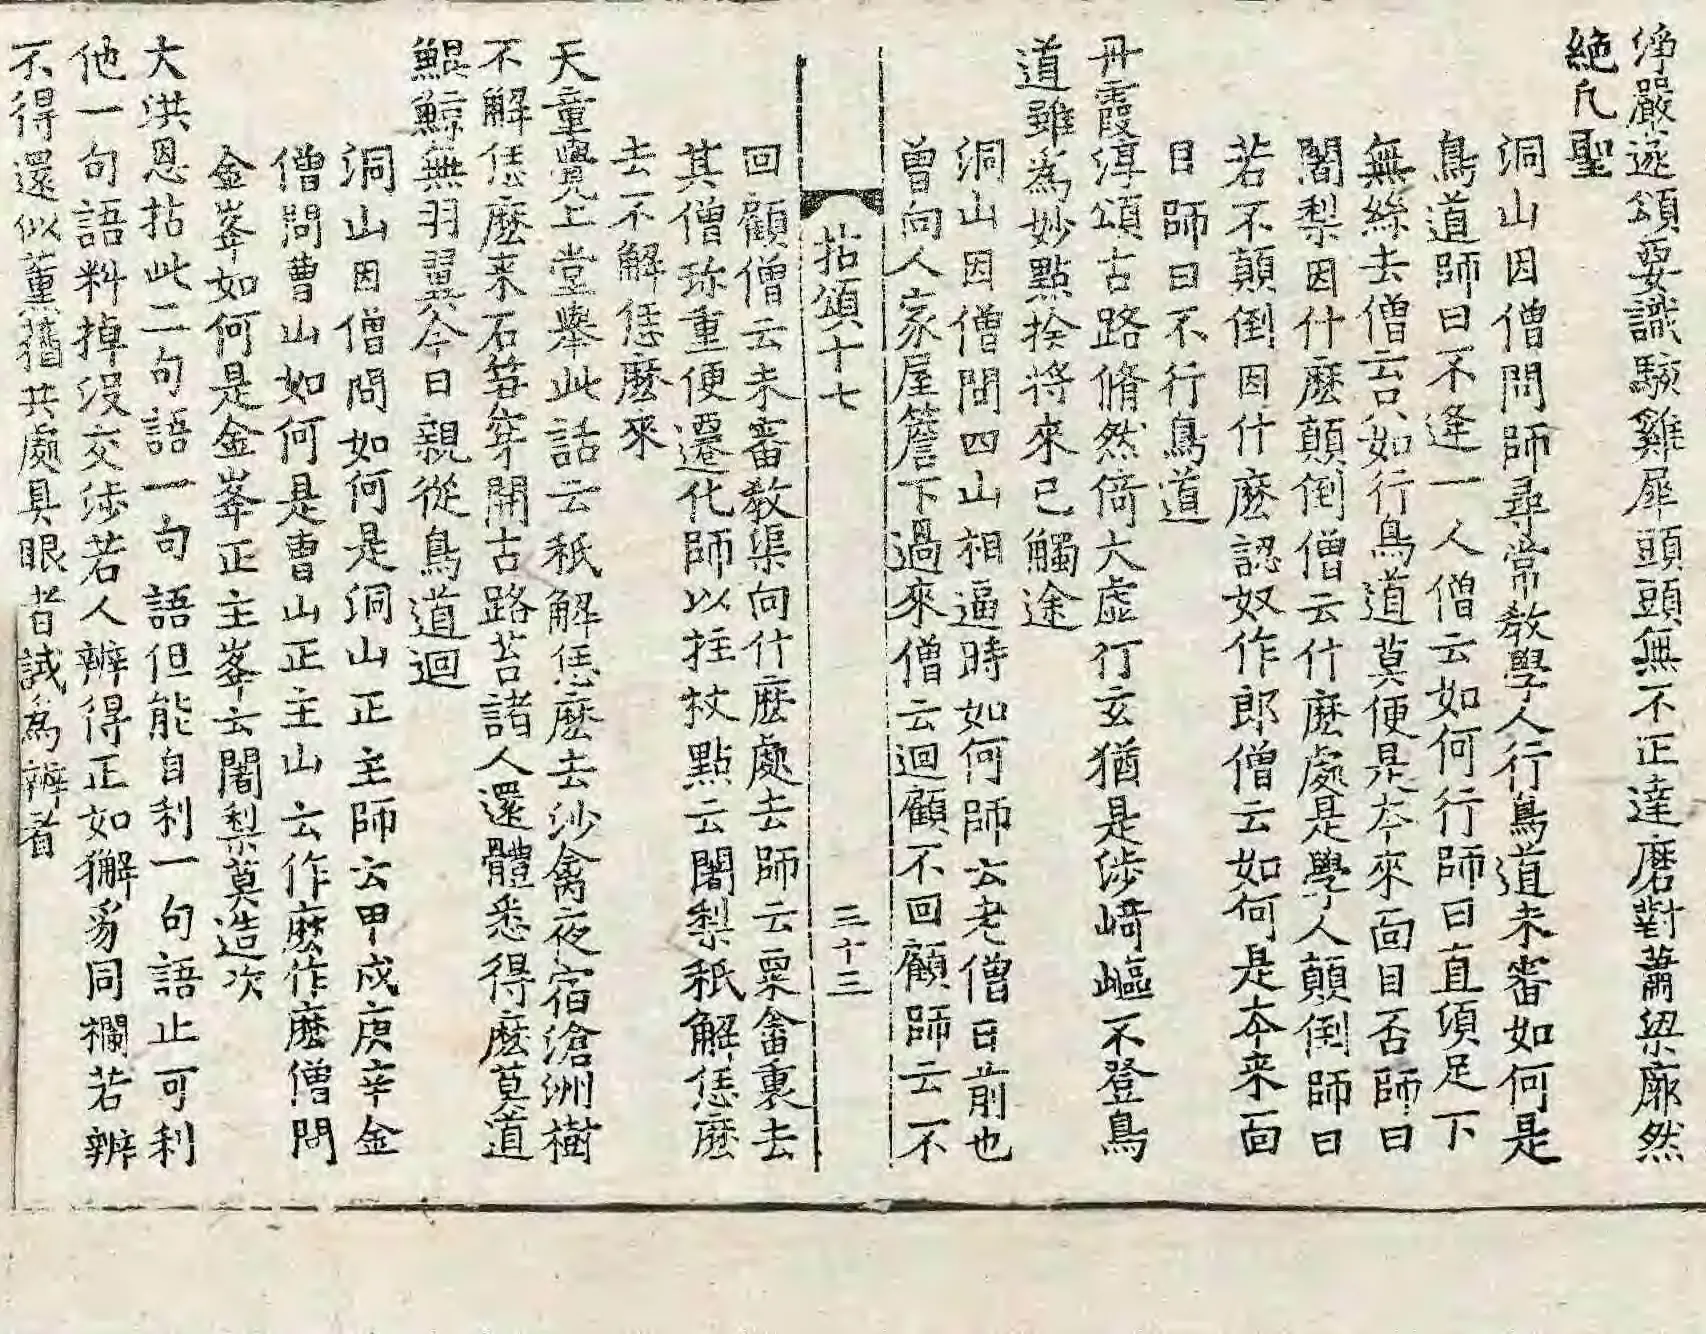 淨嚴遂頌要識駭雞犀頭頭無不正達磨對蕭梁廓然
絶凡聖
洞山因僧問師尋常教學人行鳥道未審如何是
鳥道師曰不逢一人僧云如何行師曰直須足下
無絲去僧云只如行鳥道莫便是本來面目否師曰
闍梨因什麽顛倒僧云什麽處是學人顛倒師曰
若不顛倒因什麽認奴作郎僧云如何是本来面
目師曰不行鳥道
丹霞淳頌古路脩然倚大虛行玄猶是涉崎嶇不登鳥
道雖為妙點捡將來已觸途
洞山因僧問四山相逼時如何師云老僧日前也
曾向人家屋簷下過來僧云迴顧不回顧師云不
拈頌十七
三十三
回顧僧云未審教渠向什麽處去師云粟畲裏去
其僧珎重便遷化師以拄杖點云闍梨秖解恁麽
去不解恁麽來
天童覺上堂舉此話云秖解恁麽去沙禽夜宿滄洲樹
不解恁麽来石笋穿開古路苔諸人還體悉得麽莫道
鯤鯨無羽翼今日親從鳥道迴
洞山因僧問如何是洞山正主師云甲戍庚辛金
僧問曹山如何是曹山正主山云作麽作麽僧問
金峯如何是金峯正主峯云闍梨莫造次
大洪恩拈此二句語一句語但能自利一句語止可利
他一句語料掉没交涉若人辨得正如獬豸同欄若辨
不得還似薰蕕共處具眼者試為辨看